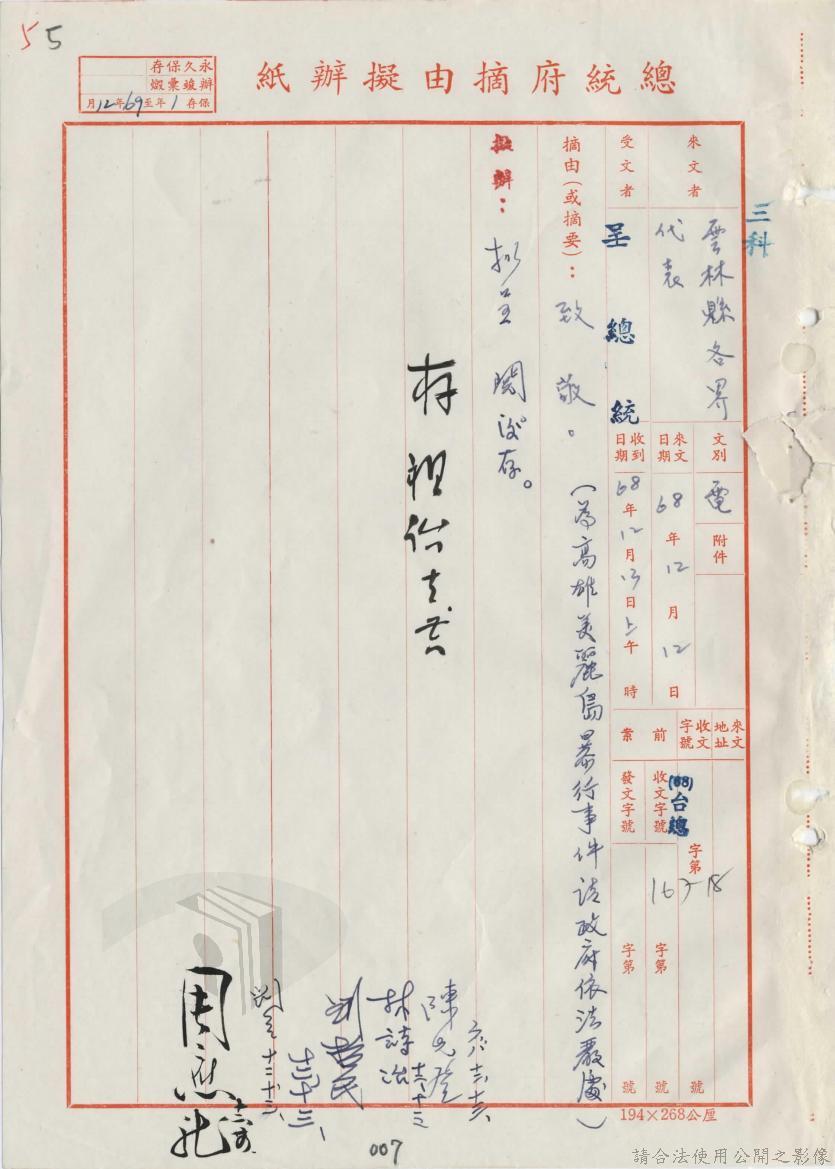 55
總統府摘由擬辦紙
永久保存
辦竣彙燬
保存1年至69年12月
三科
來文者
雲林縣各界
代表
受文者
呈總統
文別
電
附件
來文日期
68年12月12日
收到日期
68年12月13日上午 時
來文地址
收文字號
(68)台總
字第
16718
號
前案
收文字號
字第
號
發文字號
字第
號
摘由(或摘要):致敬。
(為高雄美麗島暴行事件請政府依法嚴處)
擬辦:擬呈 閱後存。
存
林詩治
十二、十三
十二十三、
十二十三、
周應龍
007
194×268公厘
請合法使用公開之影像